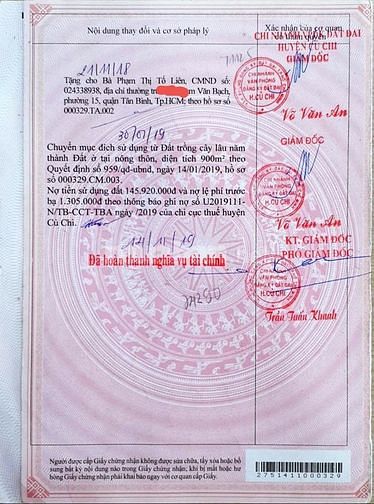 Nội dung thay đổi và cơ sở pháp lý
Xác nhận của cơ quan
có thẩm quyền
CHI NHÁNH VPĐK ĐẤT ĐAI
HUYỆN CỦ CHI
GIÁM ĐỐC
21/11/18
Tặng cho Bà Phạm Thị Tố Liên, CMND số:
024338938, địa chỉ thường trú
m Văn Bạch,
phường 15, quận Tân Bình, Tp.HCM; theo hồ sơ số
000329.TA.002
CHI NHÁNH
VĂN PHÒNG
ĐĂNG KÝ ĐẤT ĐAI
H.CỦ CHI
Võ Văn An
30/07/19
GIÁM ĐỐC
Chuyển mục đích sử dụng từ Đất trồng cây lâu năm
thành Đất ở tại nông thôn, diện tích 900m² theo
Quyết định số 959/qd-ubnd, ngày 14/01/2019, hồ sơ
số 000329.CM.003.
Nợ tiền sử dụng đất 145.920.000đ và nợ lệ phí trước
bạ 1.305.000đ theo thông báo ghi nợ số U2019111-
N/TB-CCT-TBA ngày /2019 của chi cục thuế huyện
Củ Chi.
CHI NHÁNH
VĂN PHÒNG
ĐĂNG KÝ ĐẤT ĐAI
H.CỦ CHI
Võ Văn An
14/11/19
KT. GIÁM ĐỐC
PHÓ GIÁM ĐỐC
Đã hoàn thành nghĩa vụ tài chính
CHI NHÁNH
VĂN PHÒNG
ĐĂNG KÝ ĐẤT ĐAI
H.CỦ CHI
Trần Tuấn Khanh
Người được cấp Giấy chứng nhận không được sửa chữa, tẩy xóa hoặc bổ
sung bất kỳ nội dung nào trong Giấy chứng nhận; khi bị mất hoặc hư
hỏng Giấy chứng nhận phải khai báo ngay với cơ quan cấp Giấy.
2751411000329